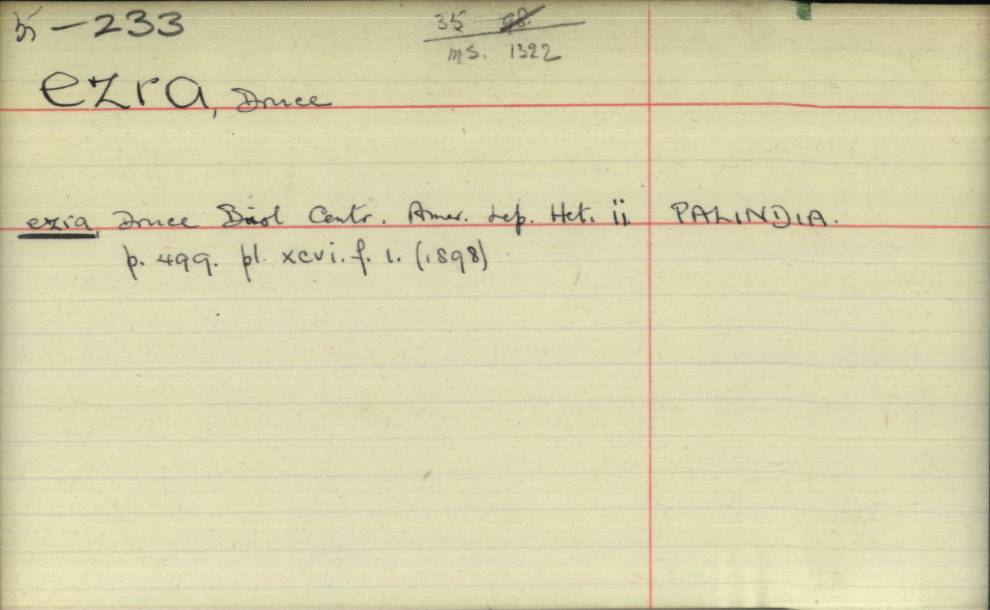 35-233
35
ms. 1322
ezra, Druce
ezra, Druce Biol. Centr. Amer. Lep. Het. ii. PALINDIA.
p. 499. pl. xcvi. f. 1. (1898)